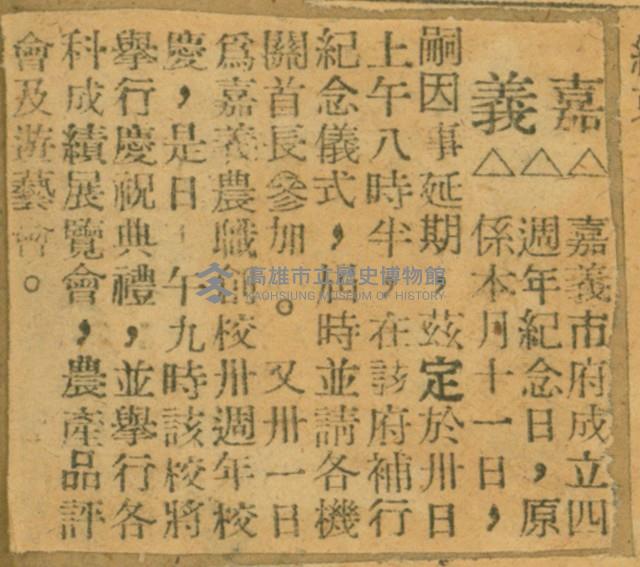 嘉義
△△△嘉義市府成立四
週年紀念日，原
係本月十一日，
嗣因事延期，茲定於卅日
上午八時半，在該府補行
紀念儀式，屆時並請各機
關首長參加。又卅一日
為嘉義農職校卅週年校
慶，是日午九時該校將
舉行慶祝典禮，並舉行各
科成績展覽會，農產品評
會及遊藝會。
高雄市立歷史博物館
KAOHSIUNG MUSEUM OF HISTORY